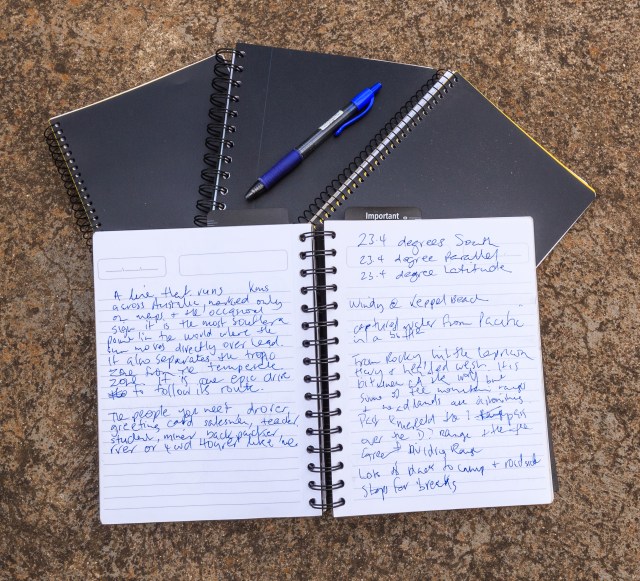 A line that runs kms
across Australia marked only
on maps + the occasional
sign. it is the most southern
point in the world where the
sun moves directly over head.
It also separates the tropic
zone from the temperate
zone. It is one epic drive
to follow its route.
The people you meet drover,
greeting card salesman, teacher
student, miner backpacker
river or 4wd 40urer like me
Important
23.4 degrees South
23.4 degree Parallel
23.4 degree Latitude
Windy @ Keppel Beach
captured water from Pacific
in a bottle
From Rocky, hit the Capricorn
Hwy + headed west. It is
bitumen all the way but
some of the mountain ranges
+ woodlands are astonishing
Past Emerald to pass
over the range + the
Great Dividing Range
Lots of places to camp + roadside
stops for breaks